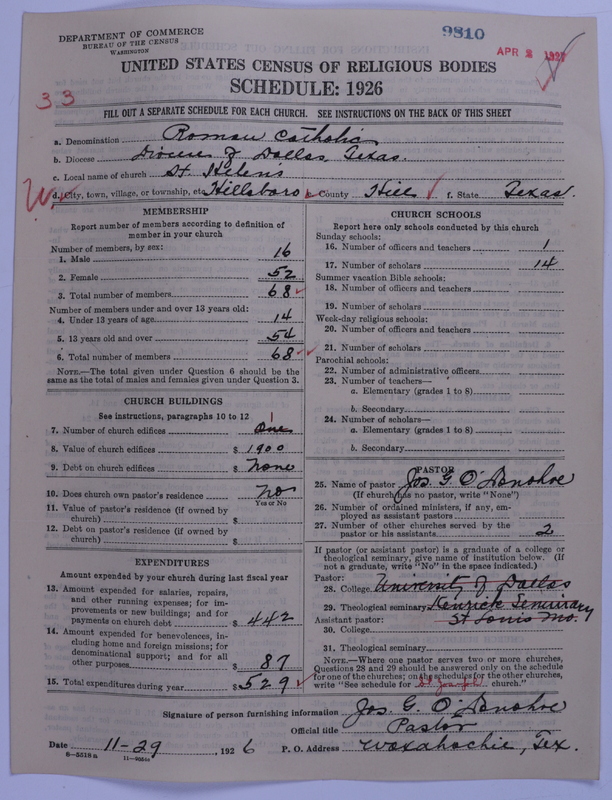 DEPARTMENT OF COMMERCE
BUREAU OF THE CENSUS
WASHINGTON
9810
APR 2 1927
UNITED STATES CENSUS OF RELIGIOUS BODIES
SCHEDULE: 1926
33
FILL OUT A SEPARATE SCHEDULE FOR EACH CHURCH. SEE INSTRUCTIONS ON THE BACK OF THIS SHEET
a. Denomination Roman Catholic
b. Diocese Diocese of Dallas, Texas.
c. Local name of church St Helens
d. City, town, village, or township, etc. Hillsboro e. County Hill f. State Texas.
MEMBERSHIP
Report number of members according to definition of
member in your church
Number of members, by sex:
1. Male 16
2. Female 52
3. Total number of members 68
Number of members under and over 13 years old:
4. Under 13 years of age 14
5. 13 years old and over 54
6. Total number of members 68
NOTE.—The total given under Question 6 should be
same as the total of males and females given under Question 3.
CHURCH BUILDINGS
See instructions, paragraphs 10 to 12
1
7. Number of church edifices One
8. Value of church edifices $ 1900
9. Debt on church edifices $ None
10. Does church own pastor's residence No
Yes or No
11. Value of pastor's residence (if owned by
church) $
12. Debt on pastor's residence (if owned by
church) $
EXPENDITURES
Amount expended by your church during last fiscal year
13. Amount expended for salaries, repairs,
and other running expenses; for im-
provements or new buildings; and for
payments on church debt $ 442
14. Amount expended for benevolences, in-
cluding home and foreign missions; for
denominational support; and for all
other purposes $ 87
15. Total expenditures during year $ 529
CHURCH SCHOOLS
Report here only schools conducted by this church
Sunday schools:
16. Number of officers and teachers 1
17. Number of scholars 14
Summer vacation Bible schools:
18. Number of officers and teachers
19. Number of scholars
Week-day religious schools:
20. Number of officers and teachers
21. Number of scholars
Parochial schools:
22. Number of administrative officers
23. Number of teachers—
a. Elementary (grades 1 to 8)
b. Secondary
24. Number of scholars—
a. Elementary (grades 1 to 8)
b. Secondary
PASTOR
25. Name of pastor Jos. G. O'Donohoe
(If church has no pastor, write "None")
26. Number of ordained ministers, if any, em-
ployed as assistant pastors
27. Number of other churches served by the
pastor or his assistants 2
If pastor (or assistant pastor) is a graduate of a college or
theological seminary, give name of institution below. (If
not a graduate, write "No" in the space indicated.)
Pastor:
28. College University of Dallas
29. Theological seminary Kenrick Seminary
Assistant pastor: St Louis Mo.
30. College
31. Theological seminary
NOTE.—Where one pastor serves two or more churches,
Questions 28 and 29 should be answered only on the schedule
for one of the churches; on the schedules for the other churches,
write "See schedule for St Joseph church."
Signature of person furnishing information Jos. G. O'Donohoe
Official title Pastor
Date 11-29, 1926 P. O. Address Waxahachie, Tex.
8—5518a 11—90544